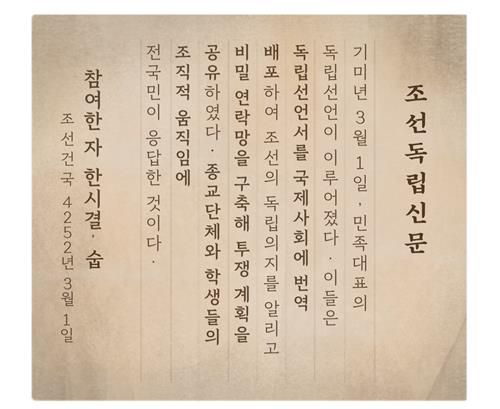 조선독립신문
기미년 3월 1일, 민족대표의
독립선언이 이루어졌다. 이들은
독립선언서를 국제사회에 번역
배포하여 조선의 독립의지를 알리고
비밀 연락망을 구축해 투쟁 계획을
공유하였다. 종교단체와 학생들의
조직적 움직임에
전국민이 응답한 것이다.
참여한 자 한시결, 숩
조선건국 4252년 3월 1일